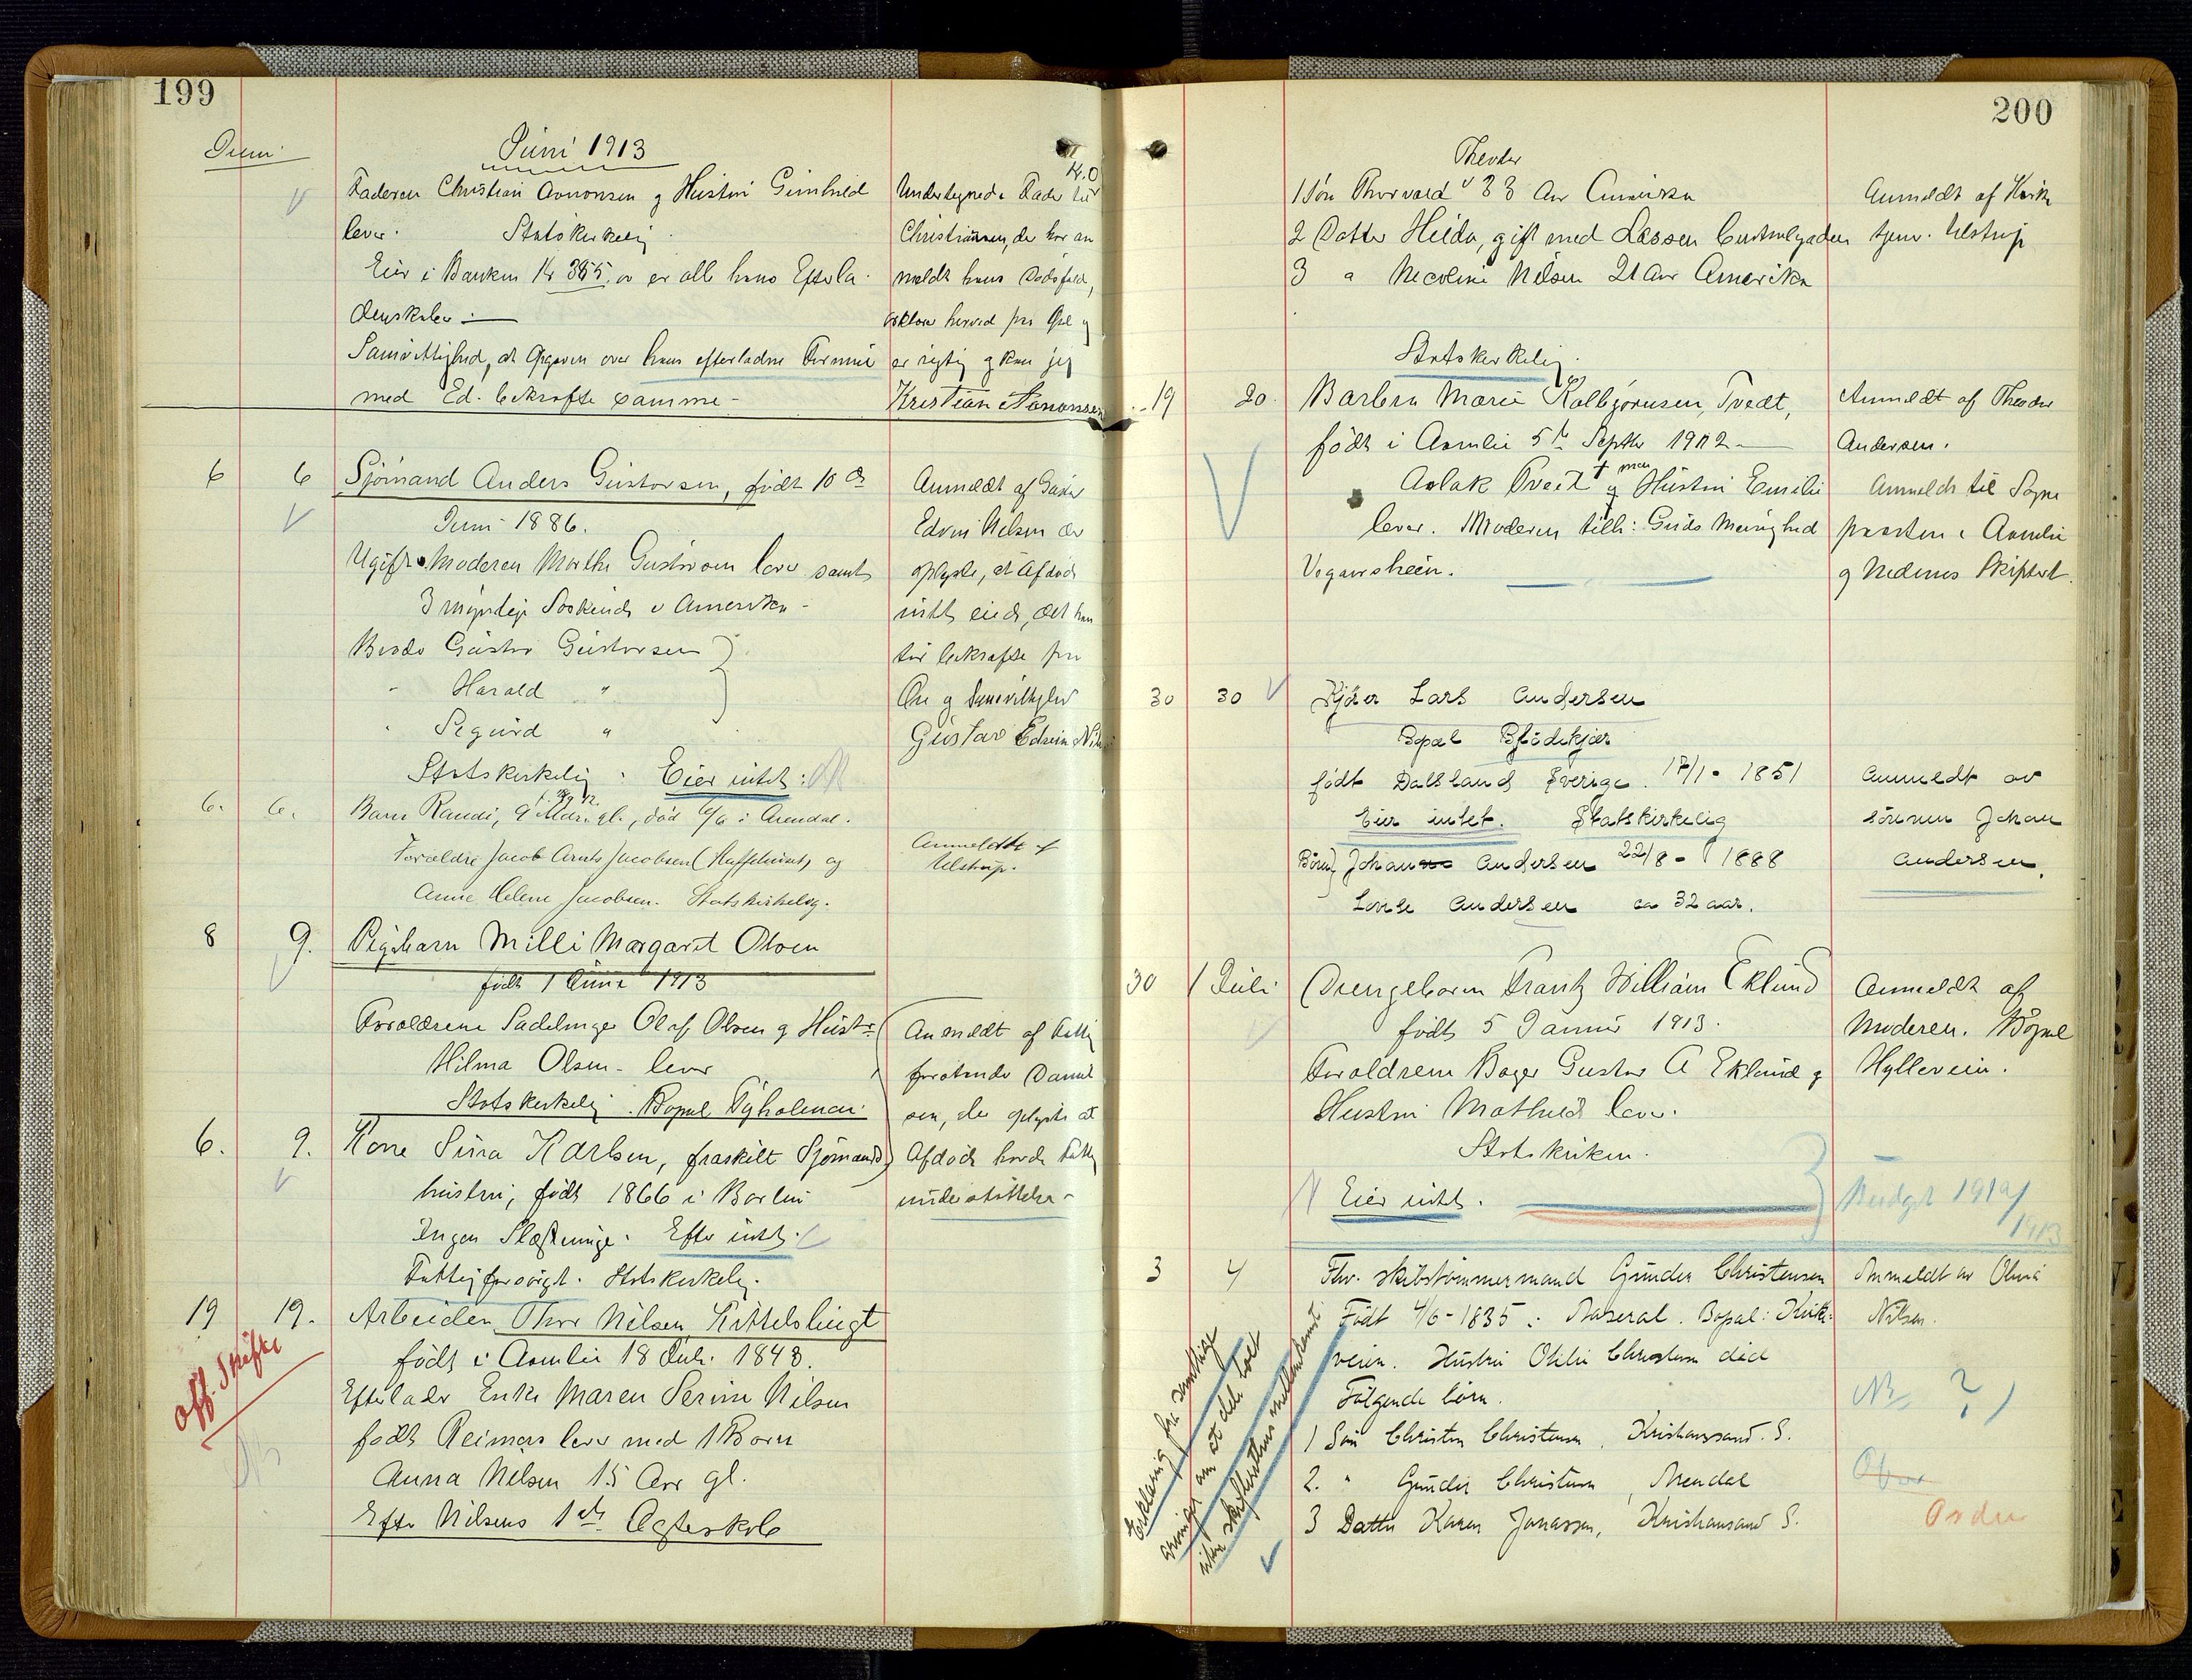 199
Juni
Juni 1913
Faderen Christian Aanonsen og Hustru Gunhild
lever. Statskirkelig.
Eier i Banken Kr 365, er alle hans Efterla-
denskaber.
Samvittighed, at Opgaven over hans efterladne Formue
med Ed. bekræfte samme -
Undertegnede Fader til
Christiansen, der har an
meldt hans Dødsfald,
erklærer herved paa Ære og
er rigtig og kan jeg
Kristian Aanonsen
6 6 Sjømand Anders Gustavsen, født 10 de
Juni 1886.
Ugift. Moderen Marthe Gustavsen lever samt
3 myndige Søskende i Amerika -
Brødr Gustav Gustavsen
" Harald "
" Sigurd "
Statskirkelig. Eier intet.
Anmeldt af Gustav
Edvin Nilsen der
oplyste, at Afdøde
intet eiede, det han
tør bekræfte paa
Ære og Samvittighed
Gustav Edvin Nilsen
6. 6. Barn Randi, 9 Mdr. gl., død 6/6 i Arendal.
Forældre Jacob Arnts Jacobsen og
Anne Helene Jacobsen. Statskirkelig.
Anmeldt af
Ulstrup.
8 9. Pigebarn Milli Margaret Olsen
født 1 Juni 1913
Forældrene Sadelmager Olaf Olsen og Hustr.
Hilma Olsen - lever
Statskirkelig. Bopæl Tyholmen.
6. 9. Kone Sina Karlsen, fraskilt Sjømands
hustru, født 1866 i
Ingen Slægtninge. Efter intet.
Fattigforsørget. Statskirkelig.
Anmeldt af Fattig
forstander Daniel
sen, der oplyste at
Afdøde havde Fattig
understøttelse -
19 19. Arbeider Thor Nilsen Kittelsbugt
født i Aamlie 18 Juli 1843.
Efterlader Enke Maren Serine Nilsen
født Reimers lever med 1 Barn
Anna Nilsen 15 Aar gl.
Efter Nilsens 1ste Ægteskab
Off. Skifte
200
Theodor
1 Søn Thorvald 33 Aar Amerika
2 Datter Hilda, gift med Lassen
3 " Nicoline Nilsen 21 Aar Amerika
Statskirkelig.
Anmeldt af Kirke
tjener Ulstrup
19 20. Barbra Marie Kolbjørnsen Tvedt,
født i Aamlie 5te Septbr 1912 -
Aslak Tveit og Hustru Emilie
lever. Moderen tilh: Guds Menighed
Vegaarsheien.
Anmeldt af Theodor
Andersen.
Anmeldt til Sogne
presten i Aamlie
og Nedenes Skifteret.
30 30 Kjører Lars Andersen
Bopæl Blødekjær
født Dalsland Sverige. 17/1 - 1851
Eier intet. Statskirkelig
Børn Johan Andersen 22/8 - 1888
Lovise Andersen ca 32 aar.
Anmeldt av
sønnen Johan
Andersen.
30 1 Juli Drengebarn Frantz William Eklund
født 5 Januar 1913.
Forældrene Bager Gustav A Eklund og
Hustru Mathilde lever.
Statskirken.
Eier intet.
Anmeldt af
Moderen. Bopæl
Hylleveien.
Budget
1913
3 4 Fhv. skibstømmermand Gunder Christensen
Født 4/6 - 1835 i Aaseral. Bopæl: Kirke-
veien. Hustru Otilie Christensen død
Følgende børn.
1 Søn Christen Christensen, Kristianssand S.
2. " Gunder Christensen, Arendal
3 Datter Karen Jonassen, Kristiansand S.
Anmeldt av Olena
Nilsen.
NB ?
Orden
Erklæring fra samtlige
arvinger om at dele boet
uten skifterettens mellemkomst